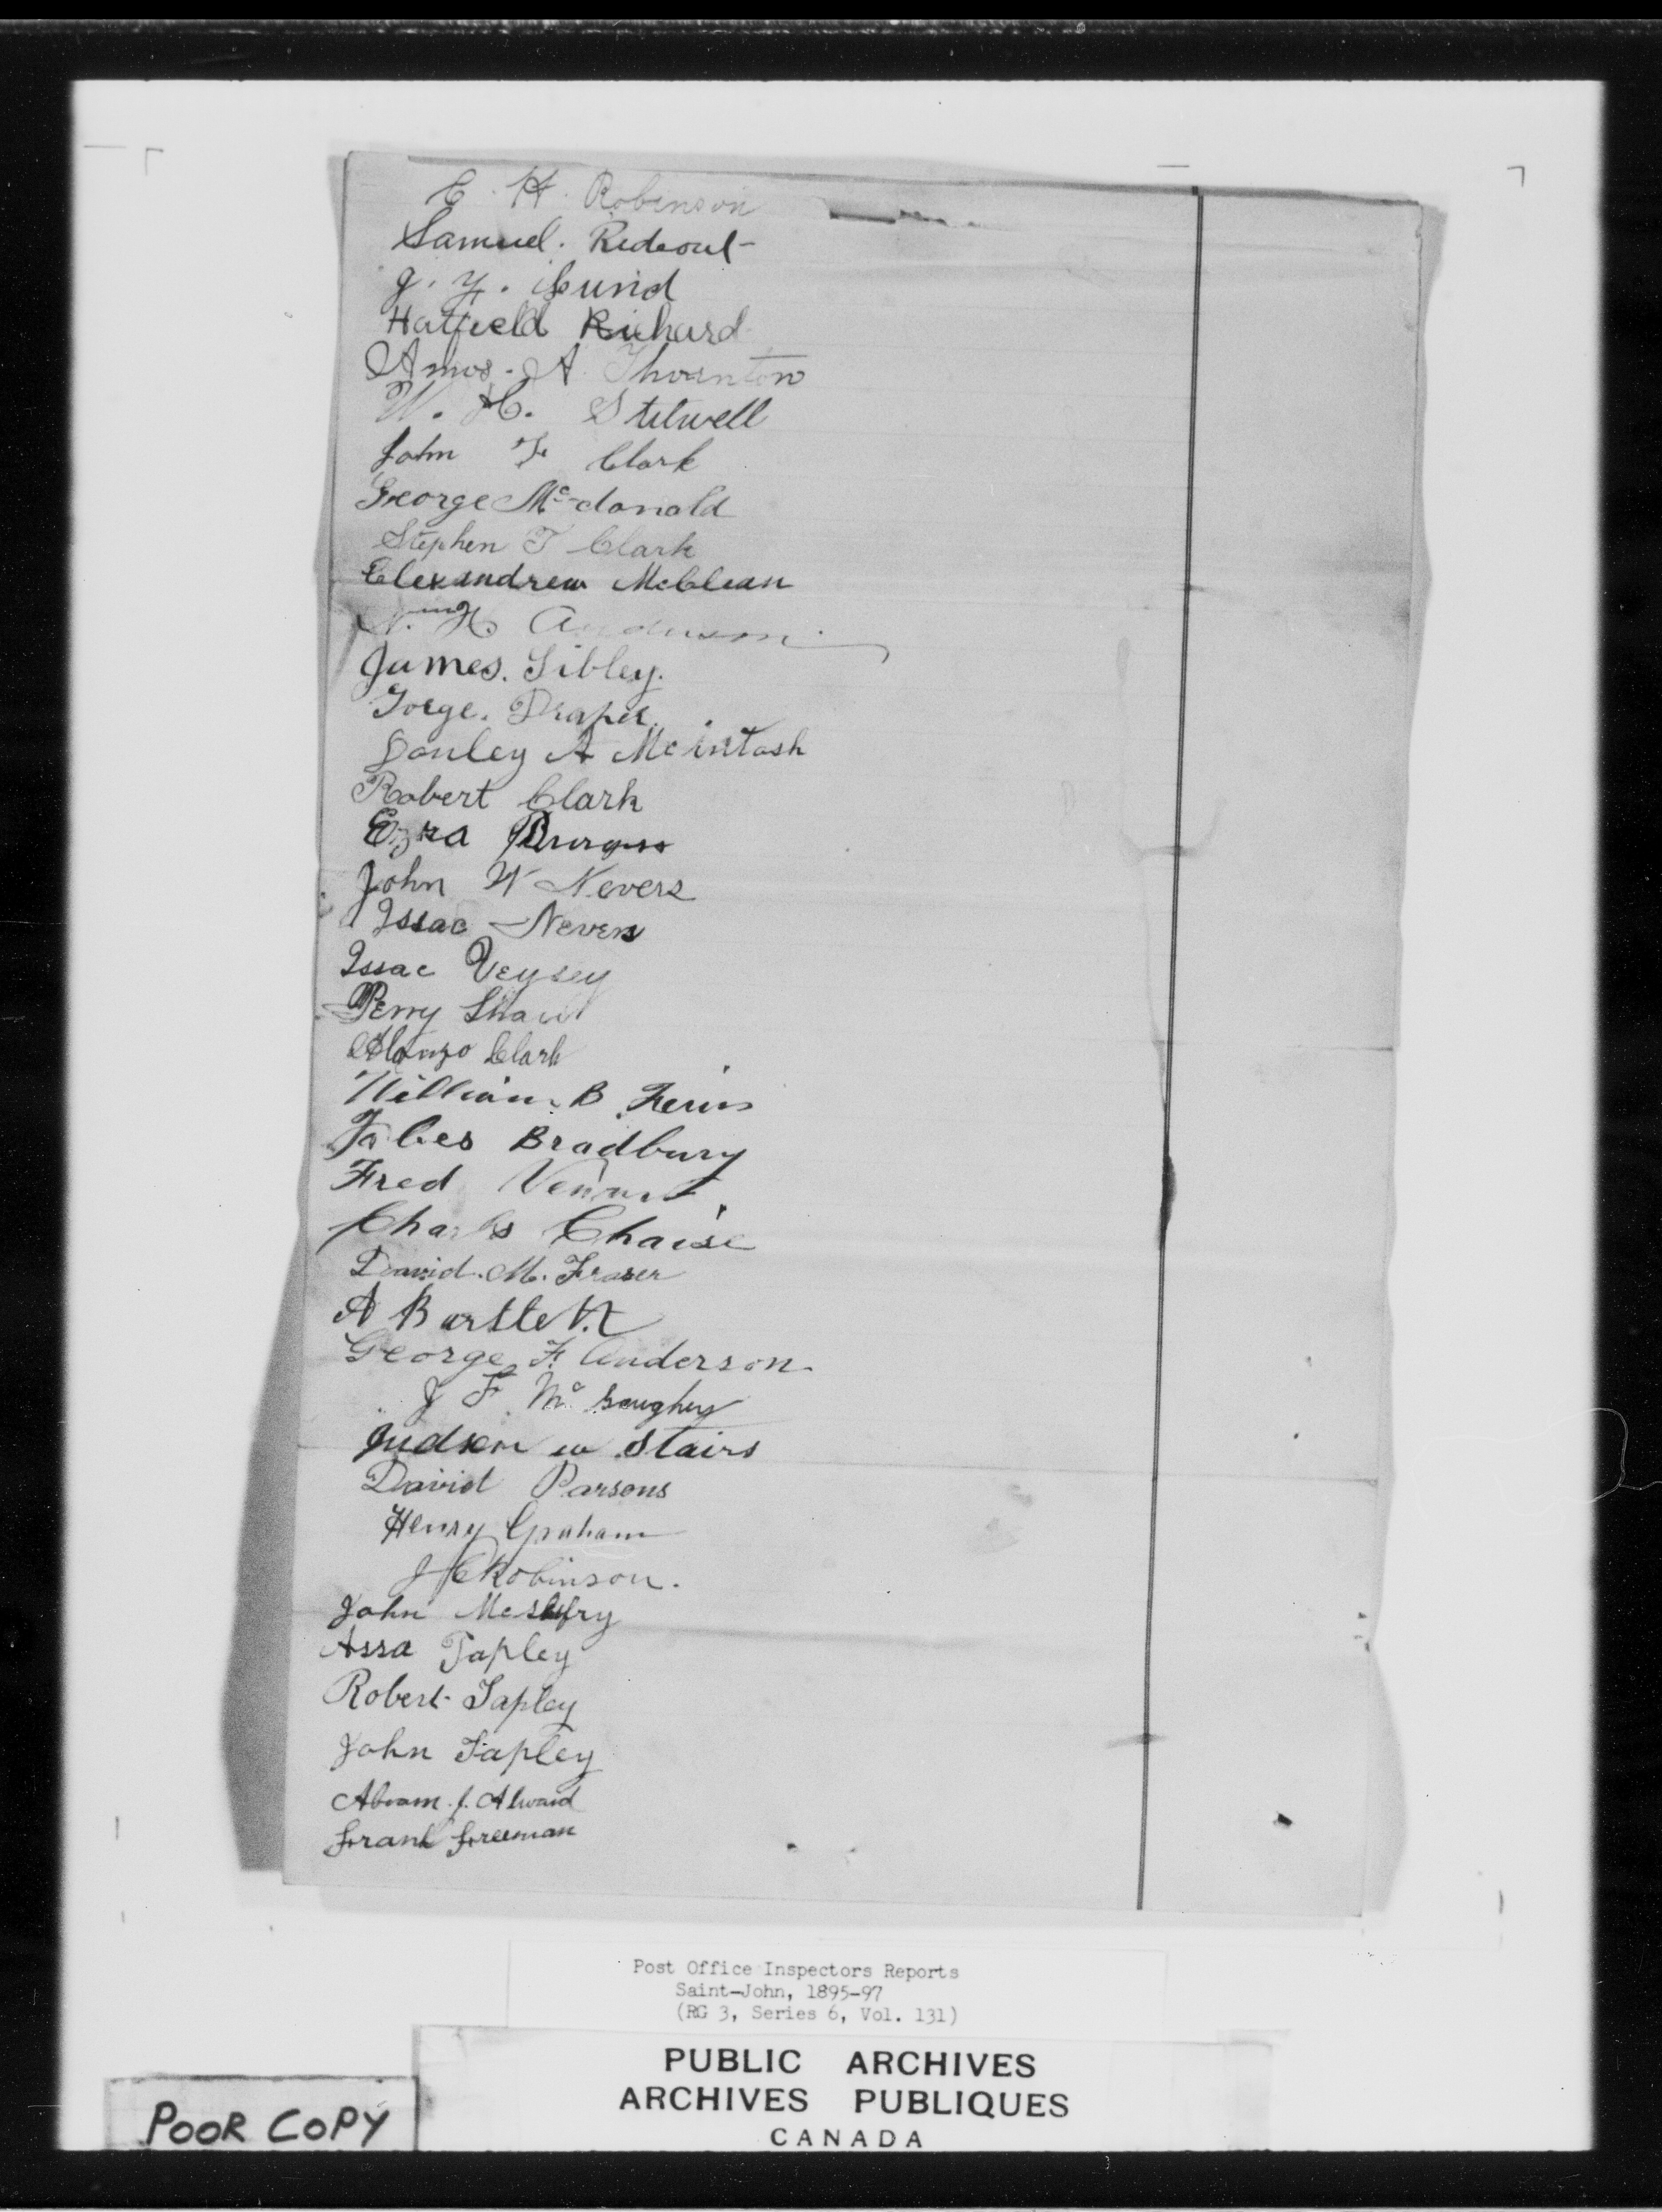 E. H. Robinson
Samuel. Rideout
G. Y. Lund
Hatfield Richard
Amos. A Thornton
W. H. Stilwell
John F Clark
George Mc-donald
Stephen T Clark
Elexandrew McClean
Anderson
James. Sibley.
Gorge. Draper.
Donley A McIntosh
Robert Clark
Ezra Burgess
John W Nevers
Issac Nevers
Issac Veysey
Perry Shaw
Alonzo Clark
William B
Bradbury
Fred
Charles Chaise
David. M. Fraser
A Bartlett
George F. Anderson.
J F Mc Gaughey
Judson w Stairs
David Parsons
Henry Graham
J C Robinson.
John
Assa Tapley
Robert Tapley
John Tapley
Abram. J. Alward
Frank Freeman
Post Office Inspectors Reports
Saint-John, 1895-97
(RG 3, Series 6, Vol. 131)
PUBLIC ARCHIVES
ARCHIVES PUBLIQUES
CANADA
POOR COPY